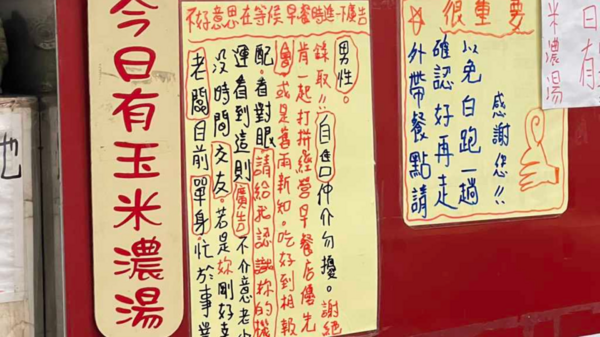 今日有玉米濃湯
不好意思在等候早餐時進一下廣告
老闆目前單身忙於事業
沒時間交友。若是妳剛好幸
運看到這則廣告不介意老少
配。看對眼請給我認識妳的機
會。或是舊雨新知。吃好到相報
肯一起打拼經營早餐店優先
錄取!! 仲介勿擾。謝絕
男性。
很重要
外帶餐點請
確認好再走
以免白跑一趟
感謝您!!
日有
米濃湯